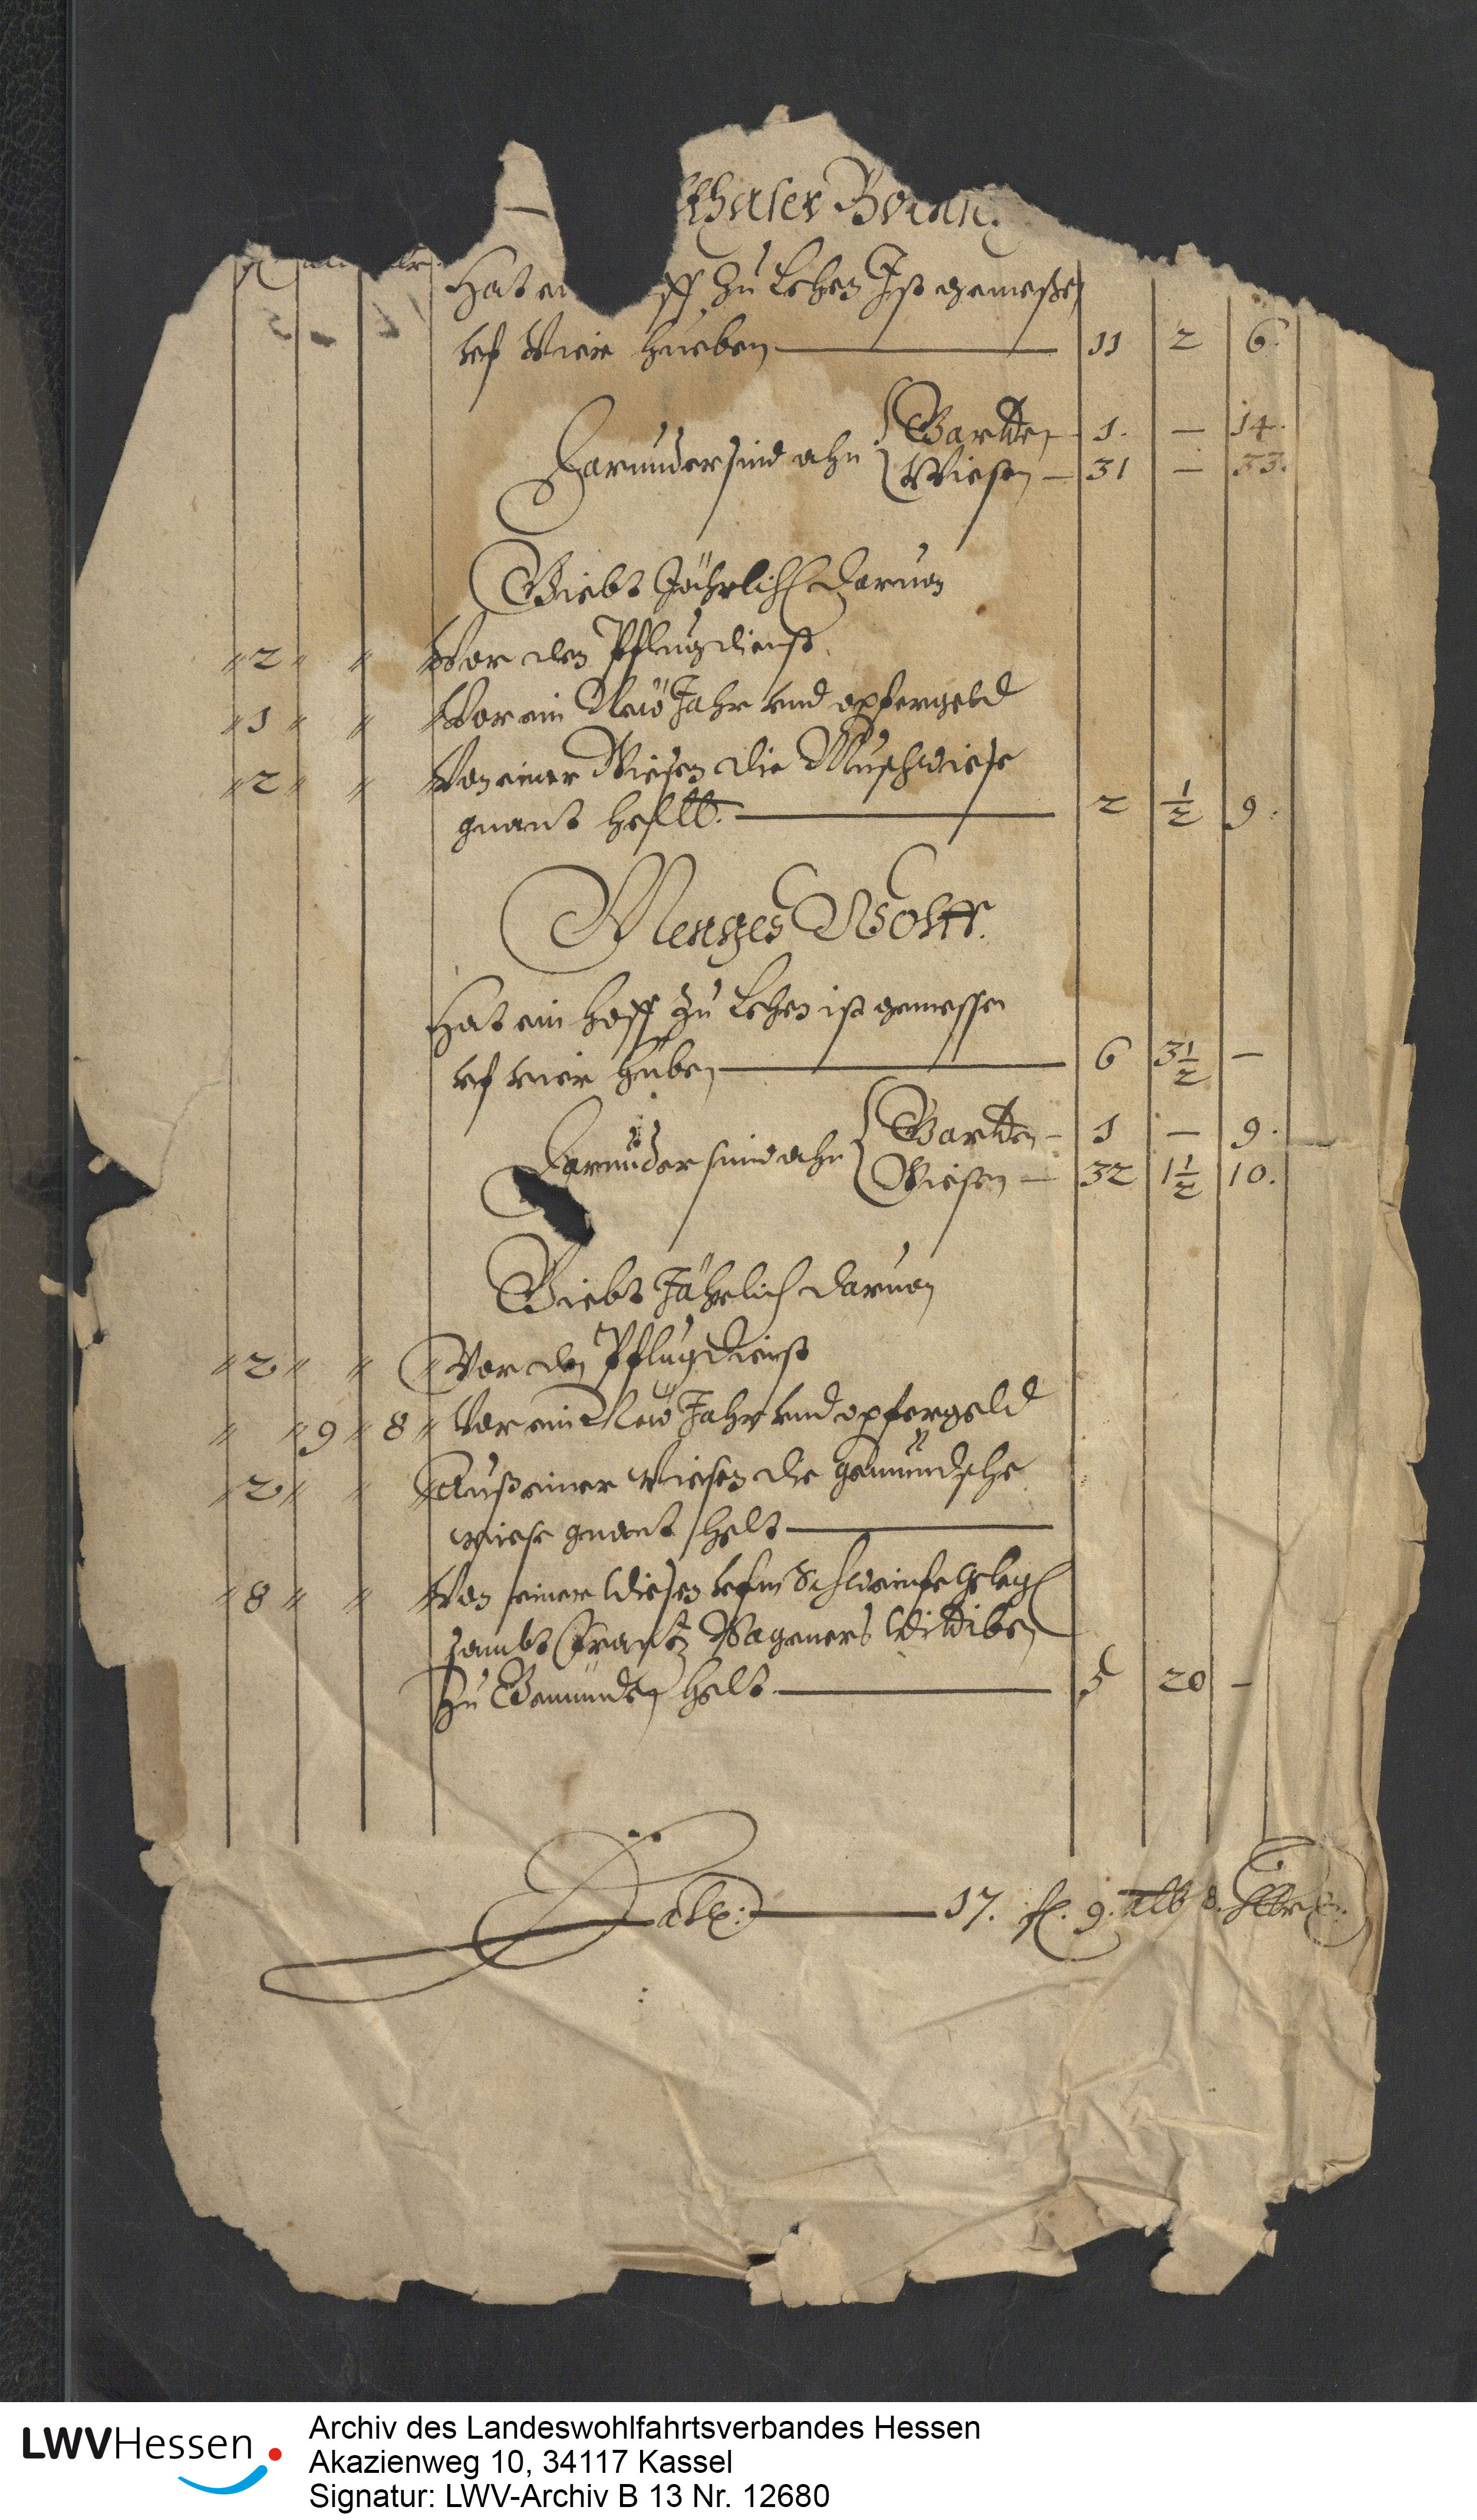 thaser Braun.
fl alb hlr
Hat ein hoff zu Lehen Ist gemeßen
uf Vier hueben 11 2 6.
Darunder sind ahn Gartten 1. — 14.
Wiesen 31 — 33.
Giebt Jährlich daruon
2 Vor den Pflugdienst
1 Vor ein Neü Jahr und opfergeld
2 Von einer Wiesen die
gnant helt 2 1/2 9.
Menges Wolff.
Hat ein hoff zu Lehen ist gemessen
uf vier huben 6 3 1/2 —
Darunder sind ahn Gartten 1 — 9.
Wiesen 32 1 1/2 10.
Giebt Jährlich daruon
2 Vor den Pflugdienst
9 8 Vor ein Neü Jahr und opfergeld
2 Auß einer Wiesen die gemündische
wiese gnant helt
8 Von einer Wiesen ufm
sambt Frantz Wageners Wittiben
zu Gemünden helt 5 20 —
17. fl. 9. alb 8. hlr
LWVHessen
Archiv des Landeswohlfahrtsverbandes Hessen
Akazienweg 10, 34117 Kassel
Signatur: LWV-Archiv B 13 Nr. 12680